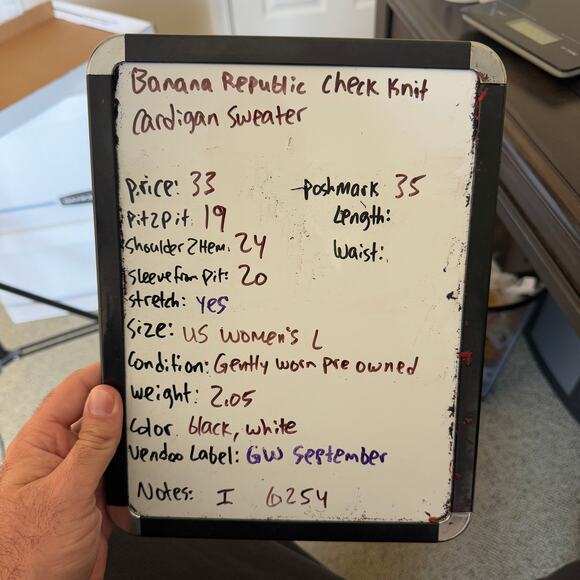 Banana Republic Check Knit
Cardigan Sweater
price: 33
Poshmark 35
Pit2Pit: 19
Length:
Shoulder2Hem: 24
Waist:
Sleeve from Pit: 20
Stretch: yes
Size: US Women's L
Condition: Gently worn pre owned
Weight: 2.05
Color: black, white
Vendoo Label: GW September
Notes: I 6254